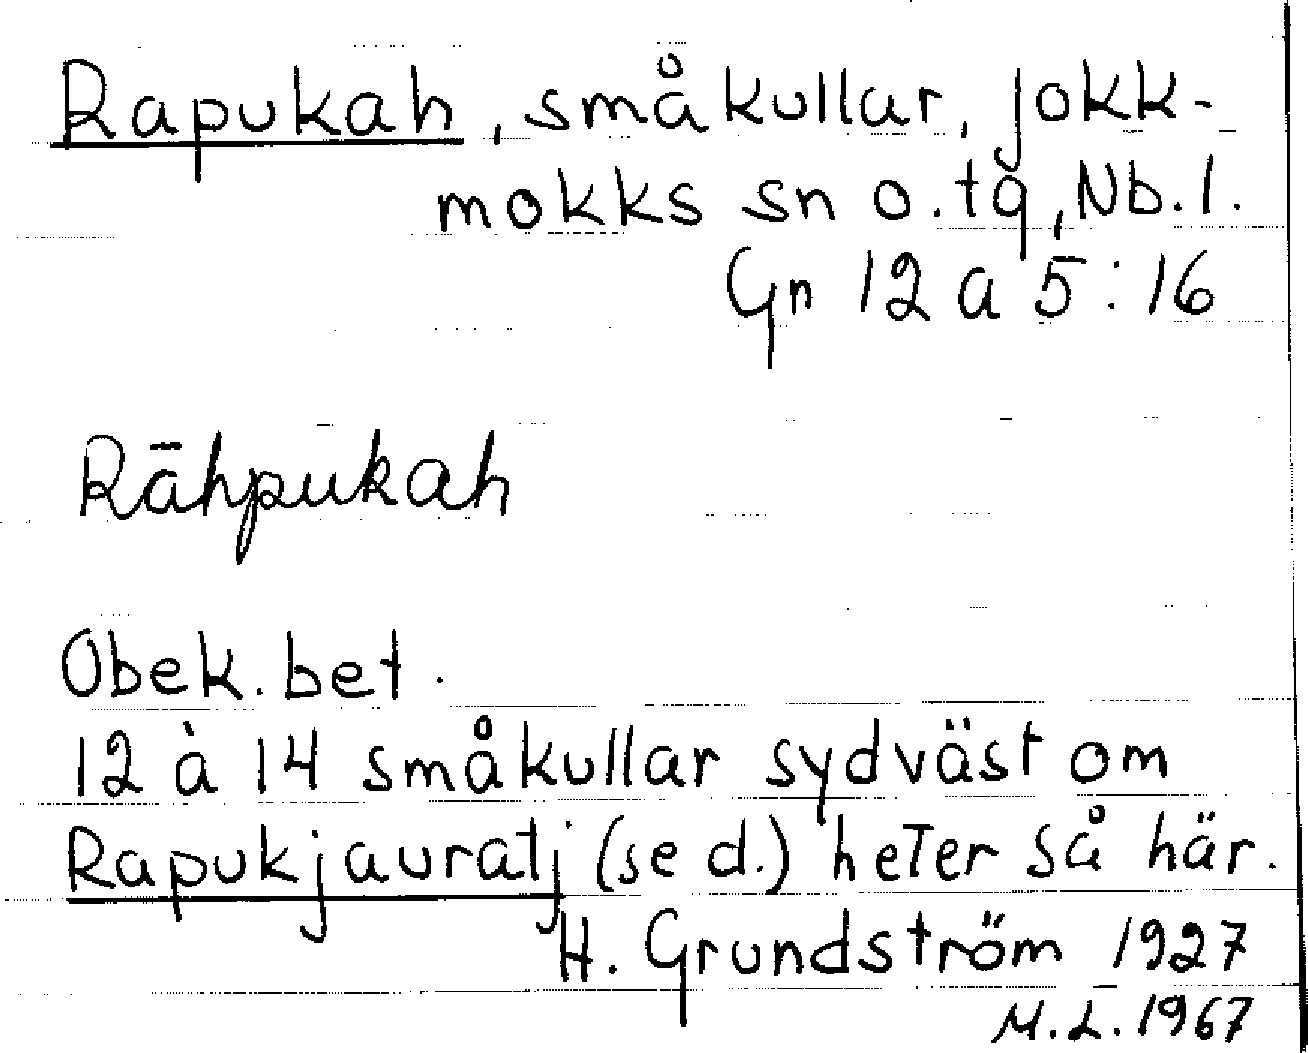 Rapukah, småkullar, Jokk-
mokks sn o. tg, Nb. l.
Gn 12 a 5:16
Rāhpukah
Obek. bet.
12 à 14 småkullar sydväst om
Rapukjauratj (se d.) heter så här.
H. Grundström 1927
M. L. 1967